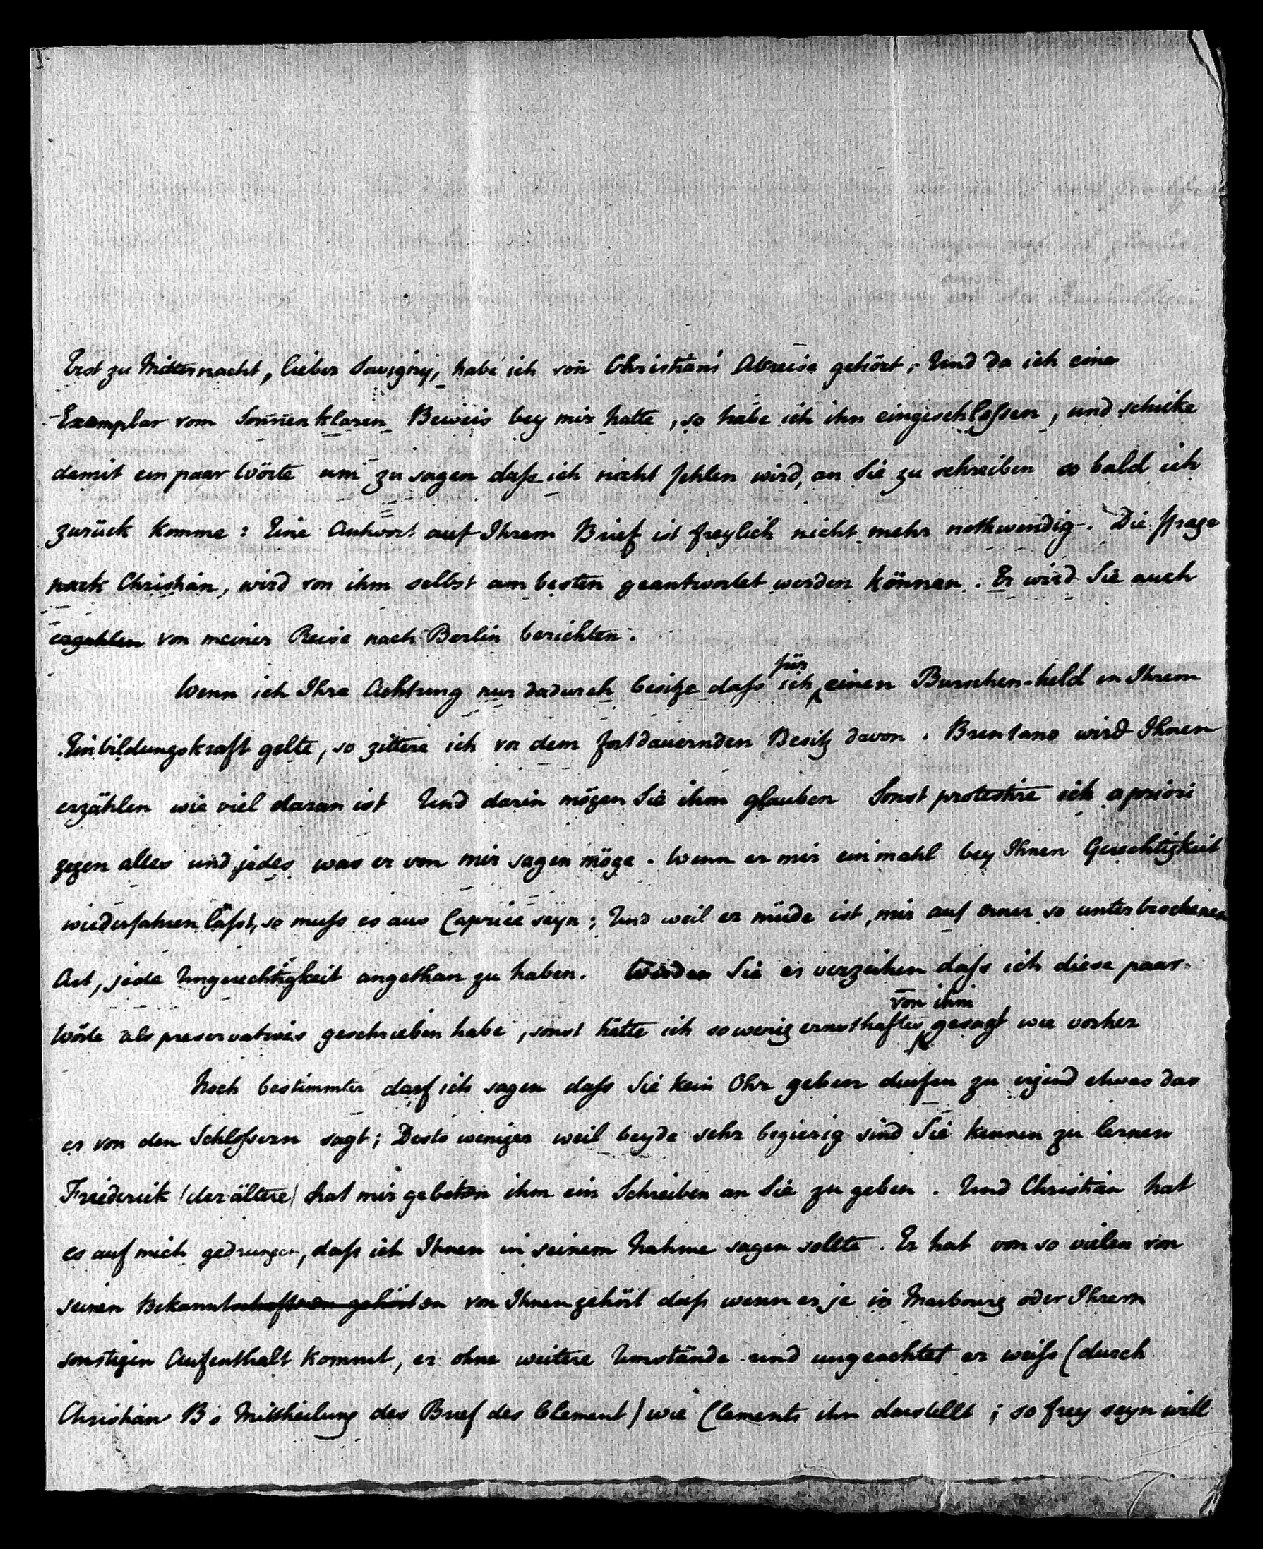 Erst zu Mitternacht, lieber Savigny, habe ich von Christian's Abreise gehört; Und da ich eine
Exemplar vom Sonnenklaren Beweis bey mir hatte, so habe ich ihn eingeschloßen, und schicke
damit ein paar Worte um zu sagen daß ich nicht fehlen wird, an Sie zu schreiben so bald ich
zurück komme: Eine Antwort auf Ihrem Brief ist freylich nicht mehr nothwendig. Die Frage
nach Christian, wird von ihm selbst am besten geantwortet werden können. Er wird Sie auch
erzahlen von meiner Reise nach Berlin berichten.
Wenn ich Ihre Achtung nur dadurch besitze daß ich für einen Burschen-held in Ihrem
Einbildungskraft gelte, so zittere ich vor dem fortdauernden Besitz davon. Brentano wird Ihnen
erzählen wie viel daran ist Und darin mögen Sie ihm glauben Sonst protestire ich a priori
gegen alles und jedes was er von mir sagen möge. Wenn er mir einmahl bey Ihnen Gerechtigkeit
wiederfahren läßt, so muß es aus Caprice seyn; Und weil er müde ist, mir auf einer so unterbrochenen
Art, jede Ungerechtigkeit angethan zu haben. Werden Sie es verzeihen daß ich diese paar
Worte als preservatives geschrieben habe, sonst hätte ich so wenig ernsthaftes von ihm gesagt wie vorher
Noch bestimmter darf ich sagen daß Sie kein Ohr geben durfen zu irgend etwas das
er von den Schloßern sagt; Desto weniger weil beyde sehr begierig sind Sie kennen zu lernen
Friederick (der ältere) hat mir gebeten ihm ein Schreiben an Sie zu geben. Und Christian hat
es auf mich gedrungen, daß ich Ihnen in seinem Nahme sagen sollte. Er hat von so vielen von
seinen Bekanntschaften gehörten von Ihnen gehört daß wenn er je in Marbourg oder Ihrem
sonstigen Aufenthalt kommt, er ohne weitere Umstände und ungeachtet er weiß (durch
Christian B's Mittheilung des Brief des Clement) wie Clements ihn darstellt; so frey seyn will